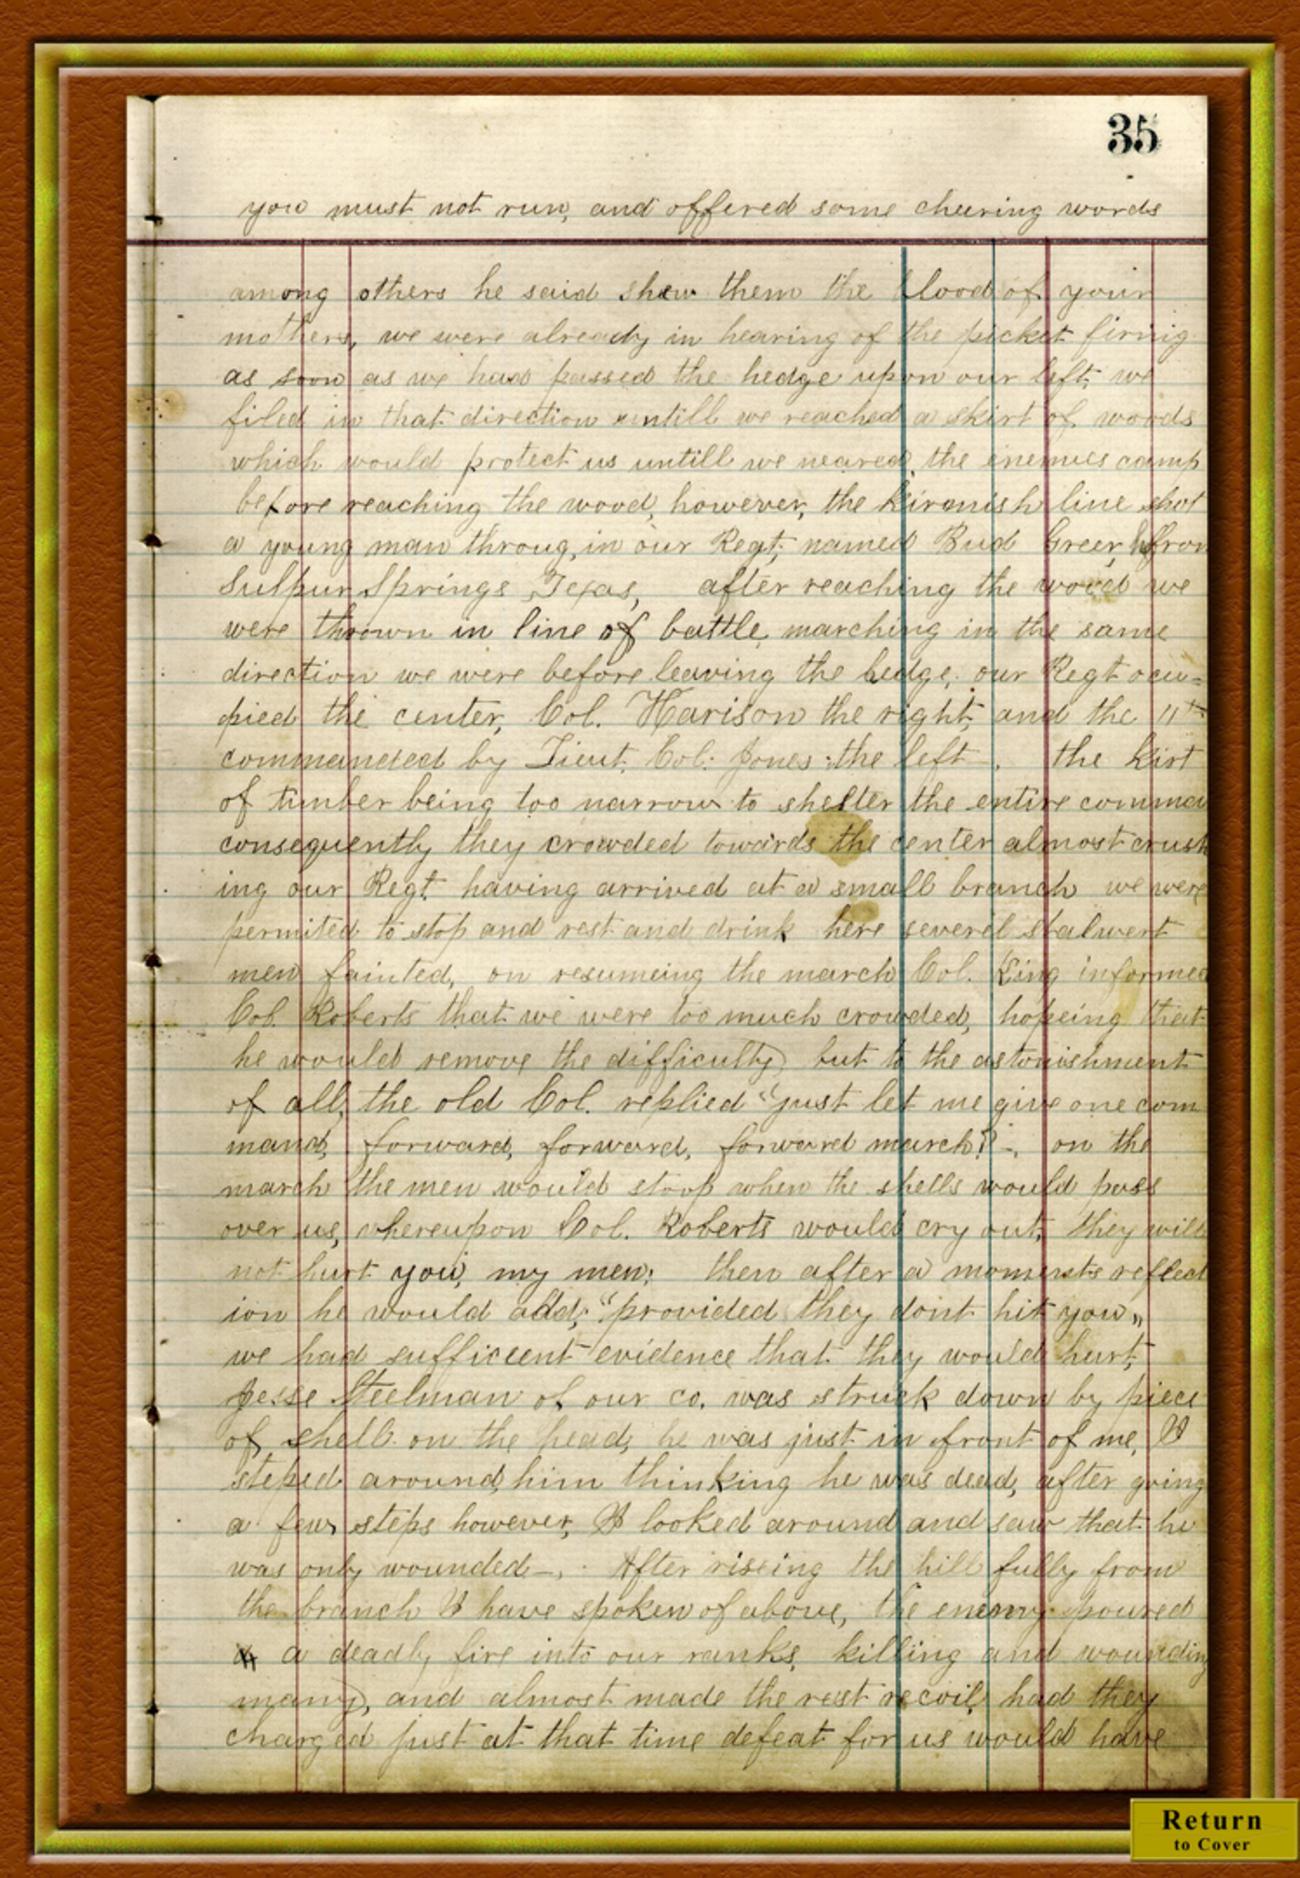 35
you must not run, and offered some cheering words
among others he said shew them the blood of your
mothers, we were already in hearing of the picket firing
as soon as we had passed the hedge upon our left, we
filed in that direction untill we reached a skirt of woods
which would protect us untill we neared the enemies camp
before reaching the wood, however, the skirmish line shot
a young man throug, in our Regt, named Bud Greer, from
Sulpur Springs Texas, after reaching the wood we
were thrown in line of battle, marching in the same
direction we were before leaving the hedge, our Regt occu=
pied the center, Col. Harison the right, and the 11th
commanded by Lieut. Col. Jones the left -. the skirt
of timber being too narrow to shelter the entire comma
consequently they crowded towards the center almost crush
ing our Regt. having arrived at a small branch we were
permited to stop and rest and drink here several stalwert
men fainted, on resumeing the march Col. King informed
Col. Roberts that we were too much crowded, hopeing that
he would remove the difficulty, but to the astonishment
of all, the old Col. replied "just let me give one com
mand, forward, forward, forward march!" -. on the
march the men would stoop when the shells would pass
over us, whereupon Col. Roberts would cry out, they will
not hurt you, my men; then after a moments reflect
ion he would add; "provided they dont hit you„
we had sufficient evidence that they would hurt,
Jesse Steelman of our co. was struck down by piece
of shell on the head, he was just in front of me, I
steped around him thinking he was dead, after going
a few steps however, I looked around and saw that he
was only wounded -. After riseing the hill fully from
the branch I have spoken of above, the enemy poured
a deadly fire into our ranks, killing and wounding
many, and almost made the rest recoil, had they
charged just at that time defeat for us would have
Return
to Cover